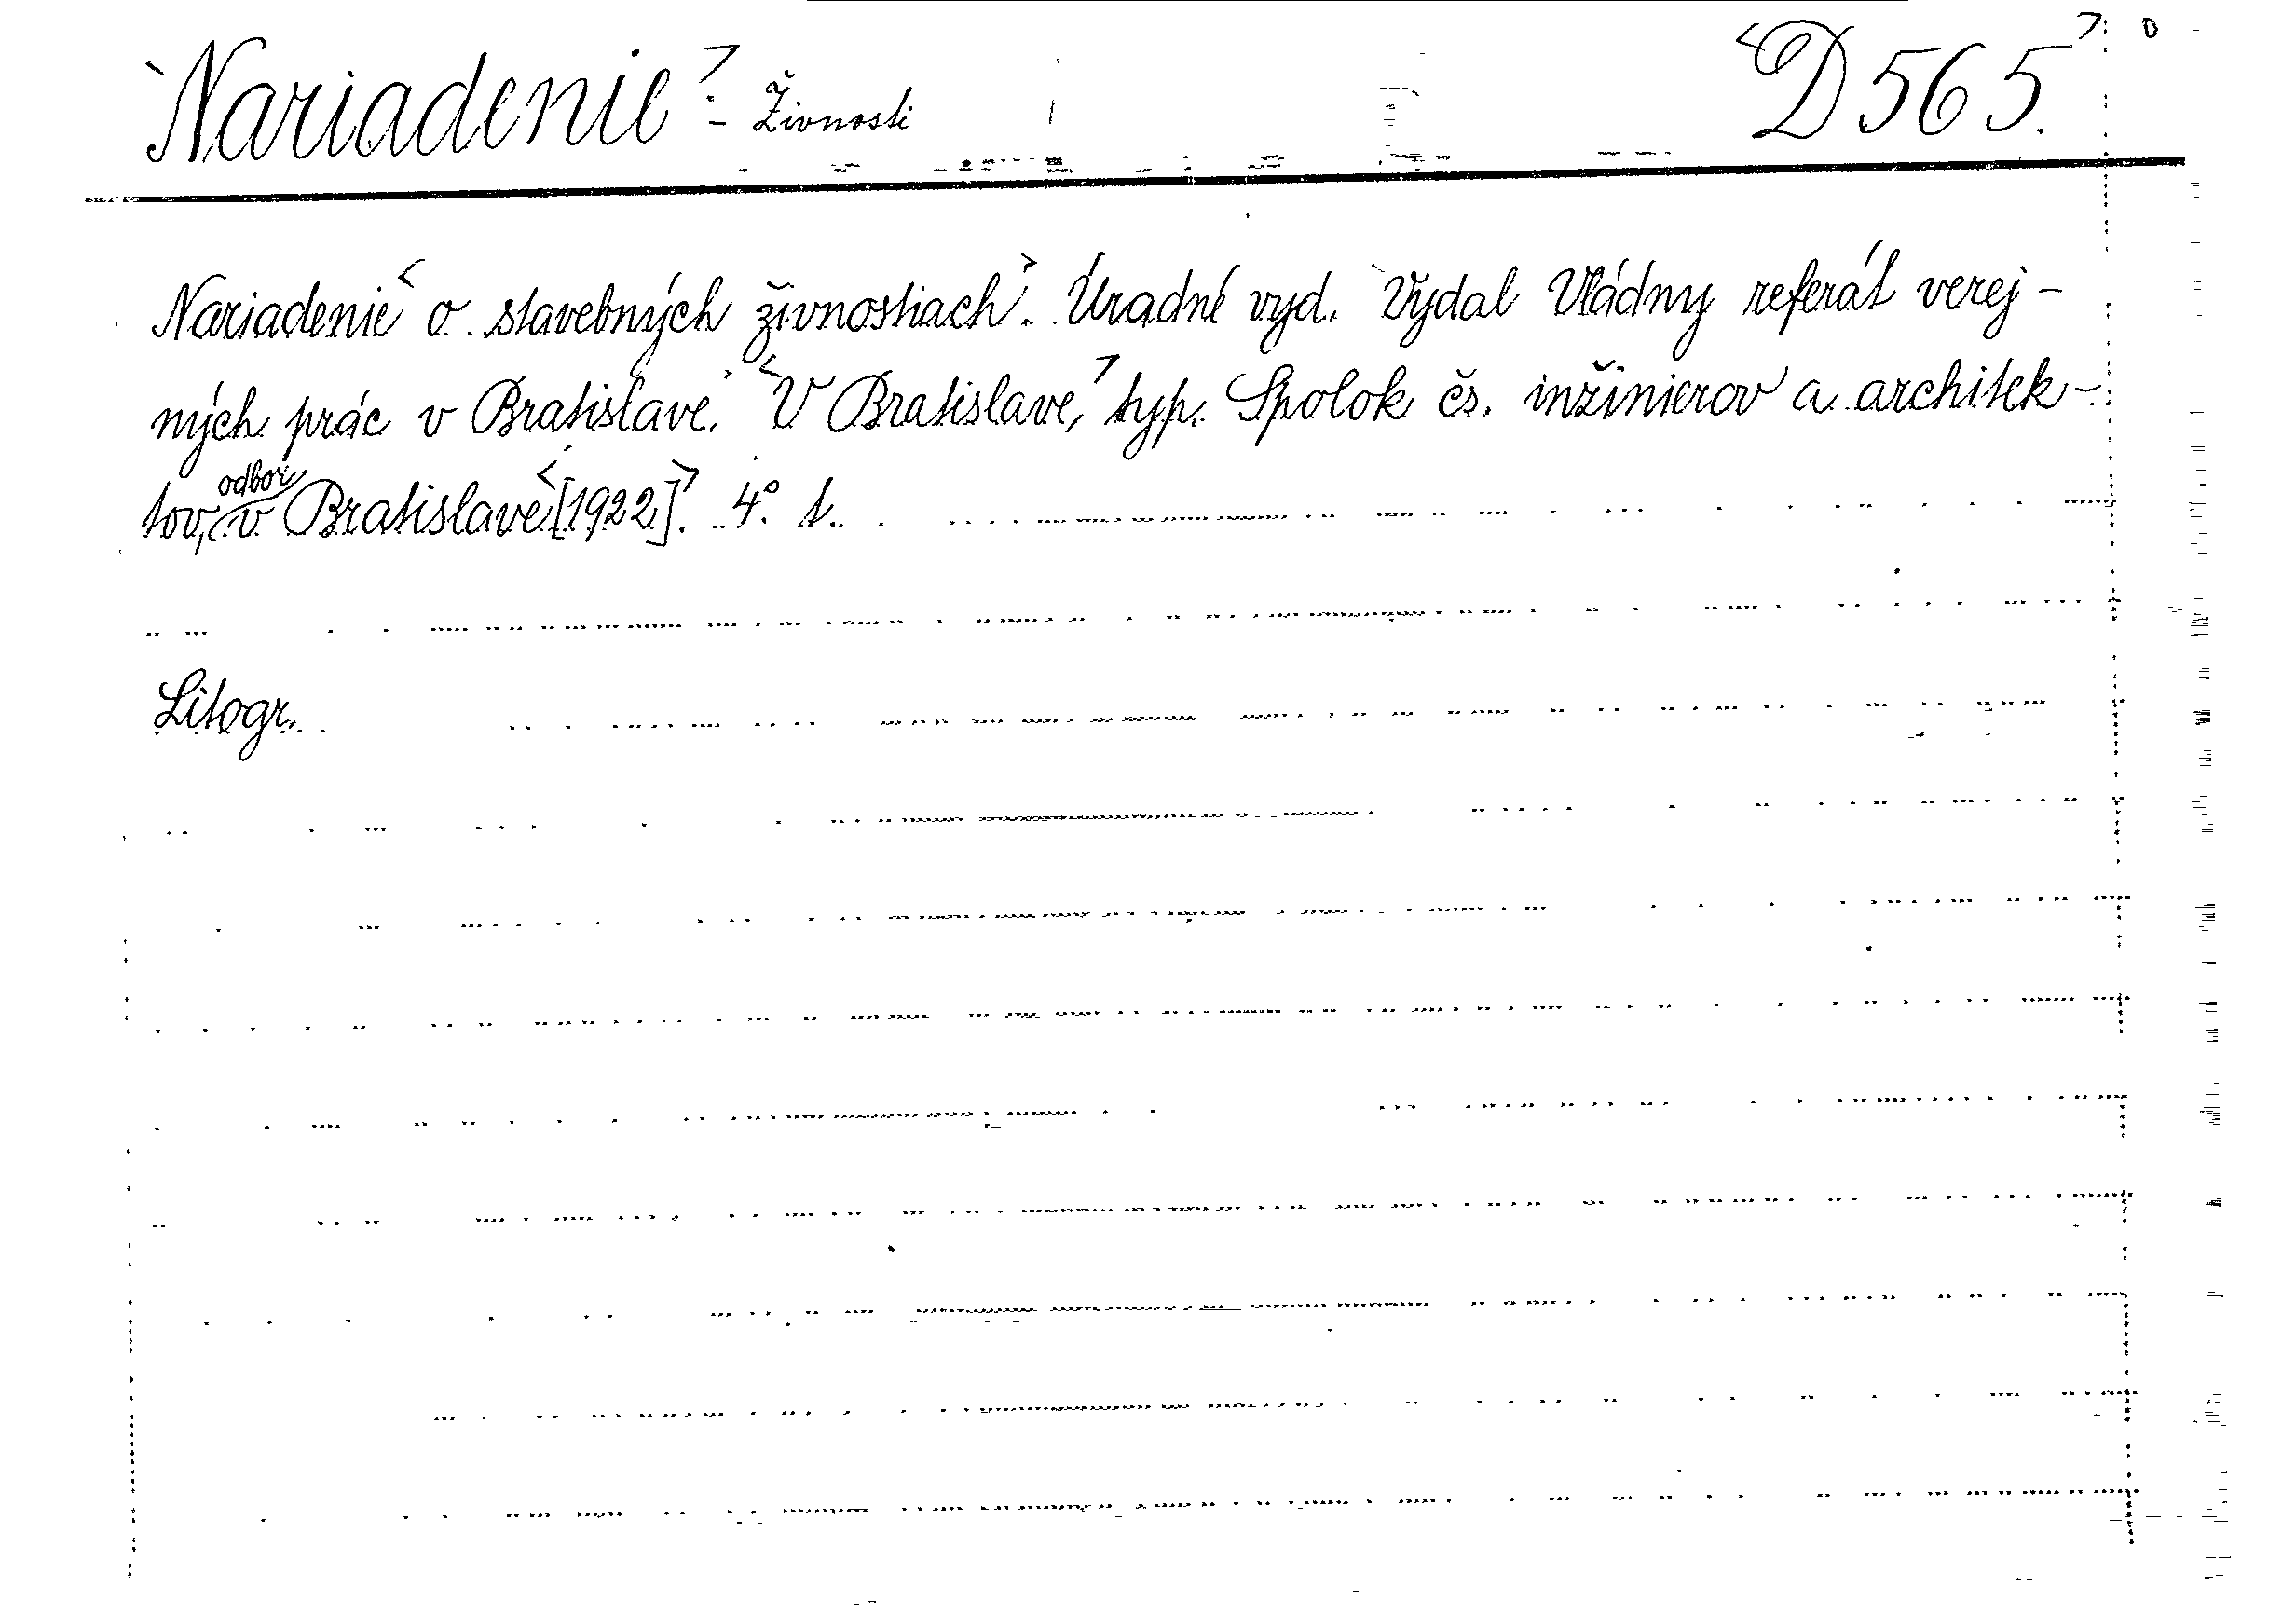 Nariadenie - Živnosti D 565.
Nariadenie o stavebných živnostiach. Úradné vyd. Vydal Vládny referát verej-
ných prác v Bratislave. V Bratislave, typ. Spolok čs. inžinierov a architek-
tov, odbor v Bratislave [1922]. 4° t.
Litogr.